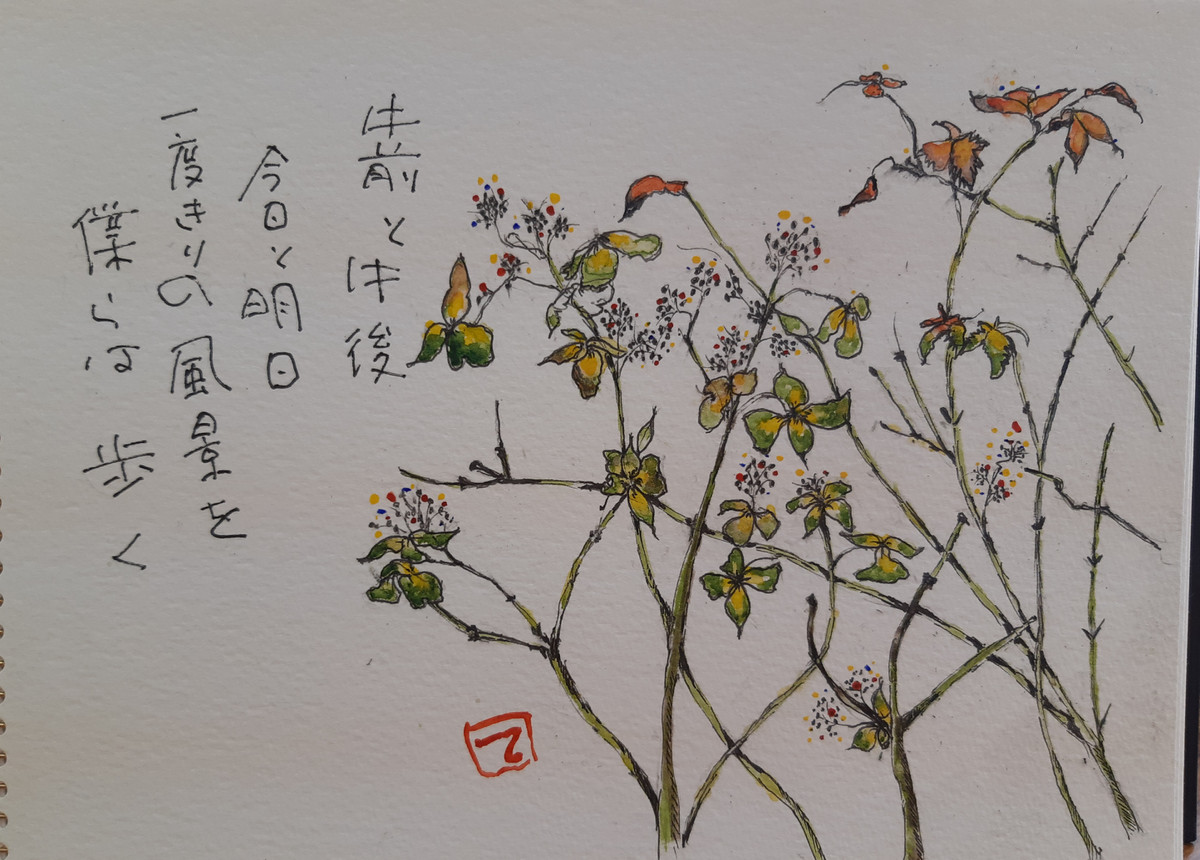 午前と午後
今日と明日
一度きりの風景を
僕らは歩く